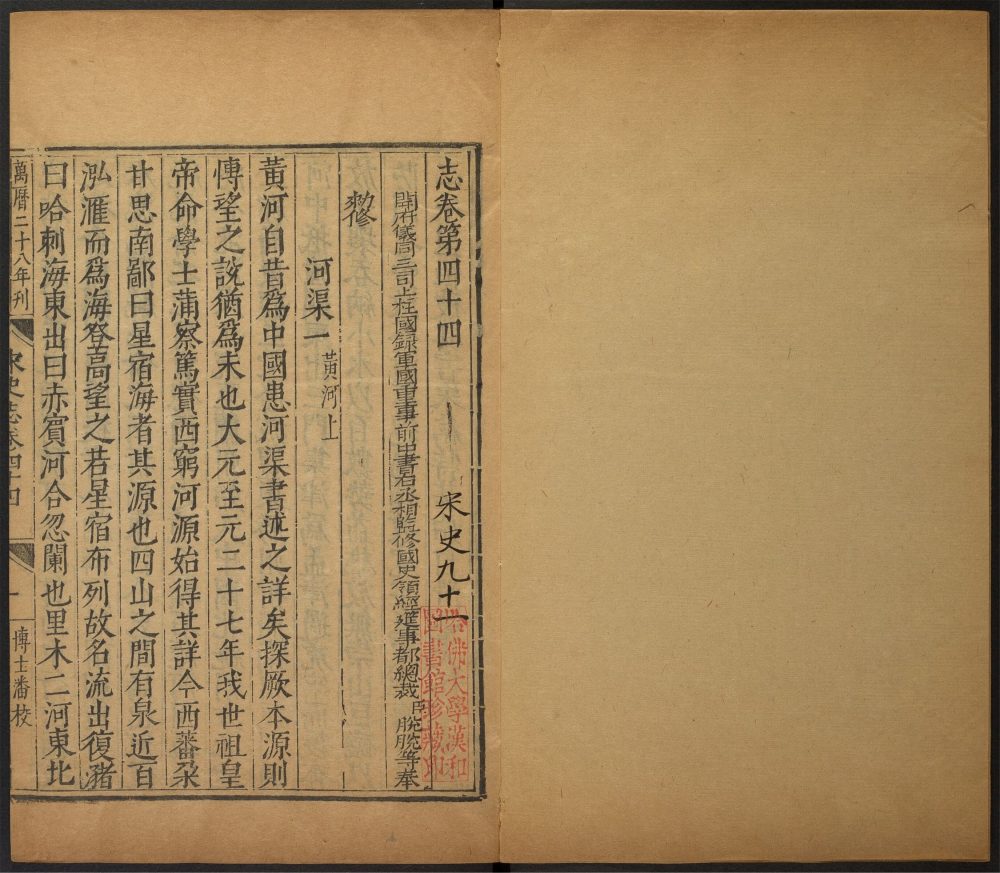 志卷第四十四 宋史九十一
開府儀同三司上柱國錄軍國重事前中書右丞相監修國史領經筵事都總裁臣脫脫等奉
敕修
河渠一 黃河上
黃河自昔爲中國患河渠書述之詳矣探厥本源則
博望之說猶爲未也大元至元二十七年我世祖皇
帝命學士蒲察篤實西窮河源始得其詳今西蕃朶
甘思南鄙曰星宿海者其源也四山之間有泉近百
泓滙而爲海登高望之若星宿布列故名流出復瀦
曰哈刺海東出曰赤賓河合忽闌也里朮二河東北
萬曆二十八年刊 宋史志卷四十四 一 博士潘校
哈佛大學漢和
圖書館珍藏印